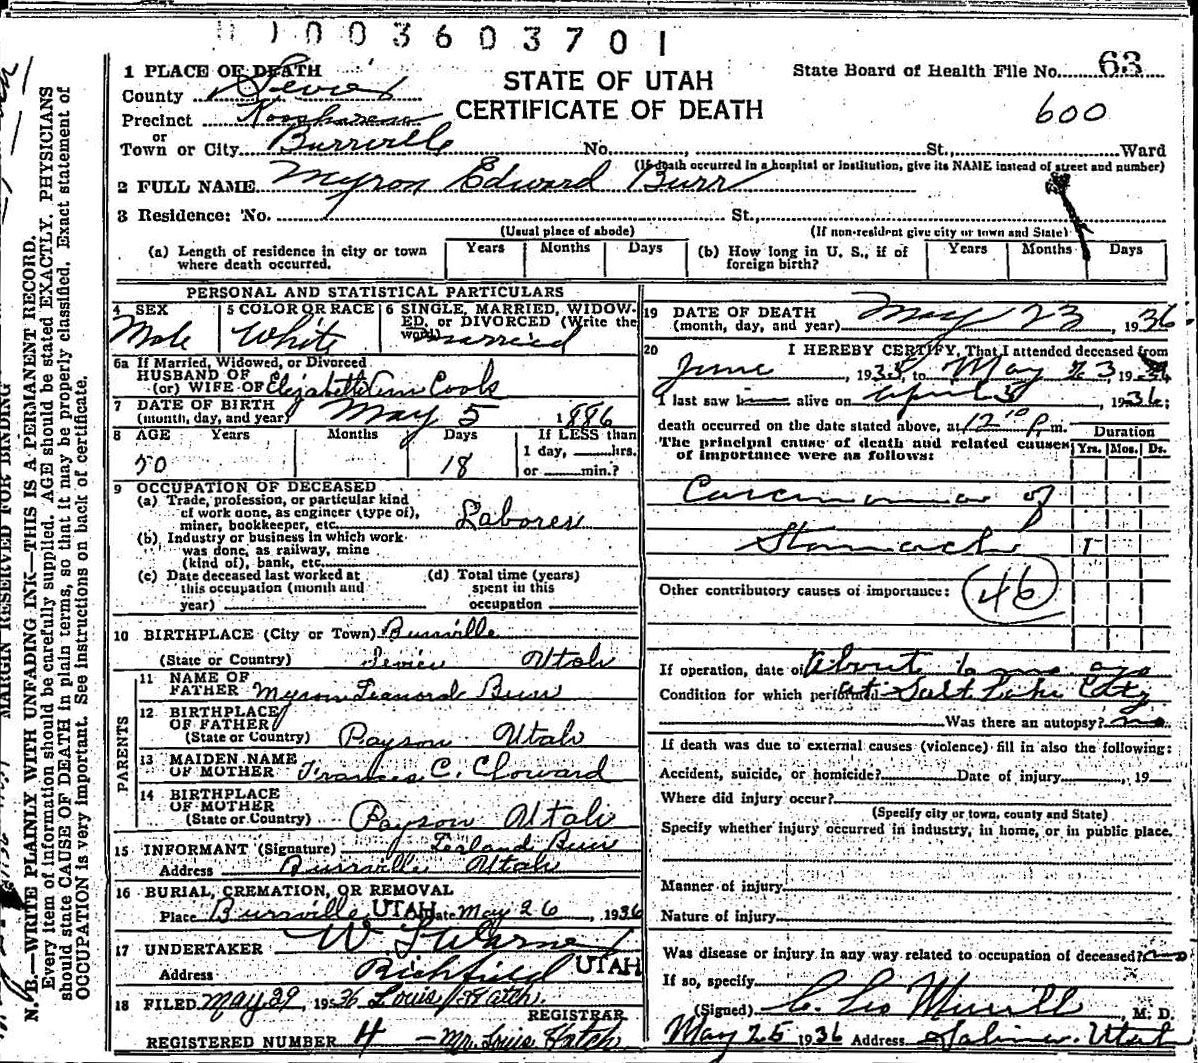 1003603701
STATE OF UTAH
CERTIFICATE OF DEATH
State Board of Health File No. 63
600
1 PLACE OF DEATH
County Sevier
Precinct Koosharem
or
Town or City Burrville No. St., Ward
(If death occurred in a hospital or institution, give its NAME instead of street and number)
2 FULL NAME Myron Edward Burr
3 Residence: No. St.,
(Usual place of abode) (If non-resident give city or town and State)
(a) Length of residence in city or town where death occurred. Years Months Days (b) How long in U. S., if of foreign birth? Years Months Days
PERSONAL AND STATISTICAL PARTICULARS
4 SEX 5 COLOR OR RACE 6 SINGLE, MARRIED, WIDOWED, or DIVORCED (Write the word)
Male White Married
6a If Married, Widowed, or Divorced
HUSBAND OF
(or) WIFE OF Elizabeth Cook
7 DATE OF BIRTH
(month, day, and year) May 5 1886
8 AGE Years Months Days If LESS than
1 day, hrs.
50 18 or min.?
9 OCCUPATION OF DECEASED
(a) Trade, profession, or particular kind
of work done, as engineer (type of),
miner, bookkeeper, etc. Laborer
(b) Industry or business in which work
was done, as railway, mine
(kind of), bank, etc.
(c) Date deceased last worked at
this occupation (month and
year)
(d) Total time (years)
spent in this
occupation
10 BIRTHPLACE (City or Town) Burrville
(State or Country) Sevier Utah
PARENTS
11 NAME OF
FATHER Myron Burr
12 BIRTHPLACE
OF FATHER
(State or Country) Payson Utah
13 MAIDEN NAME
OF MOTHER Frances C. Cloward
14 BIRTHPLACE
OF MOTHER
(State or Country) Payson Utah
15 INFORMANT (Signature) Burr
Address Burrville Utah
16 BURIAL, CREMATION, OR REMOVAL
Place Burrville UTAH Date May 26, 1936
17 UNDERTAKER W
Address Richfield UTAH
18 FILED May 29 1936 Louis Hatch
REGISTRAR
REGISTERED NUMBER 4 Mr Louis Hatch
19 DATE OF DEATH
(month, day, and year) May 23, 1936
20 I HEREBY CERTIFY, That I attended deceased from
June, 1935, to May 23 19
I last saw h alive on April 3, 1936;
death occurred on the date stated above, at 12 10 P m.
The principal cause of death and related causes
of importance were as follows:
Duration
Yrs. Mos. Ds.
Carcinoma of
Stomach 1
Other contributory causes of importance: 46
If operation, date of About 6 mo ago
Condition for which performed at Salt Lake City
Was there an autopsy? no
If death was due to external causes (violence) fill in also the following:
Accident, suicide, or homicide? Date of injury, 19
Where did injury occur?
(Specify city or town, county and State)
Specify whether injury occurred in industry, in home, or in public place.
Manner of injury
Nature of injury
Was disease or injury in any way related to occupation of deceased? no
If so, specify
(Signed) C. Leo Merrill, M. D.
May 25 1936 Address Salina, Utah
MARGIN RESERVED FOR BINDING
N. B.—WRITE PLAINLY WITH UNFADING INK—THIS IS A PERMANENT RECORD.
Every item of information should be carefully supplied. AGE should be stated EXACTLY. PHYSICIANS
should state CAUSE OF DEATH in plain terms, so that it may be properly classified. Exact statement of
OCCUPATION is very important. See instructions on back of certificate.